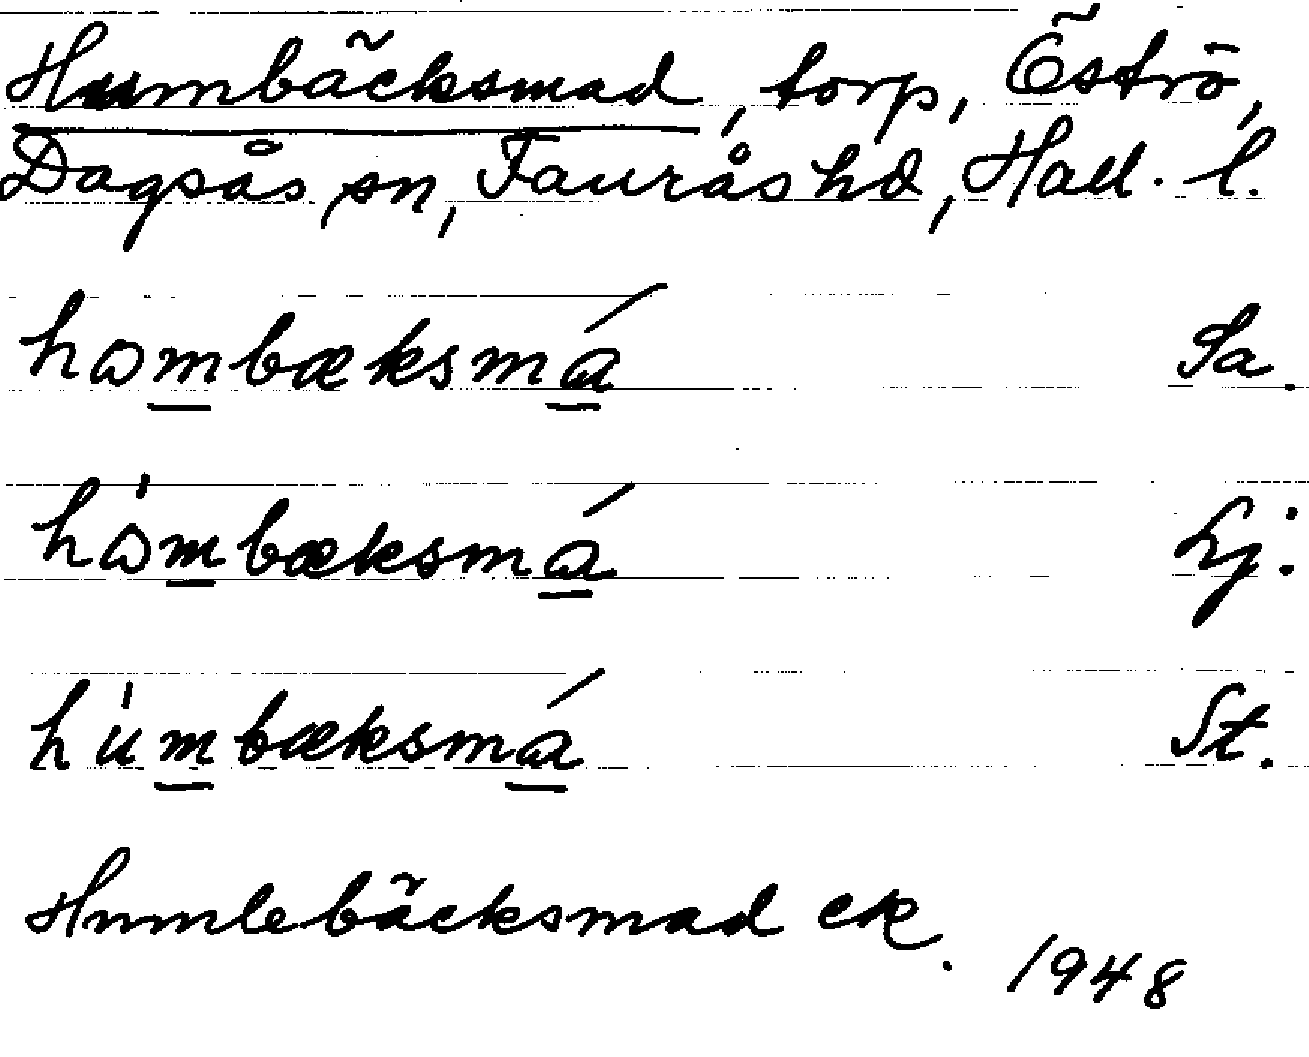 Humbäcksmad, torp, Öströ,
Dagsås sn, Faurås hd, Hall. l.
hombæksmá Sa.
hòmbæksmá Lj.
hùmbæksmá St.
Humlebäcksmad ek. 1948